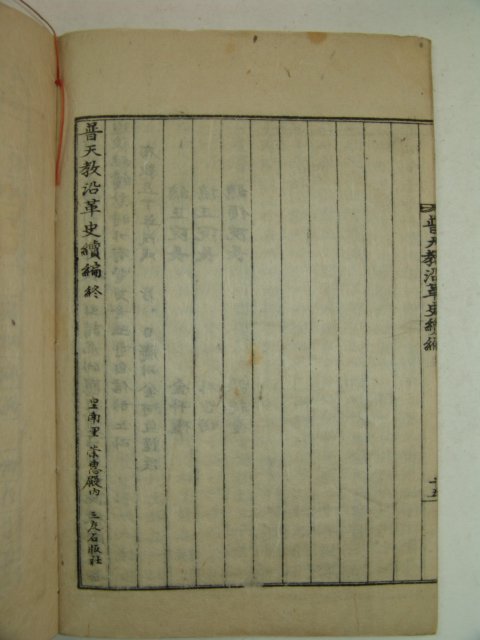 普天教沿革史續編
普天教沿革史續編終 皇南里 崇惠殿內 三友石版社